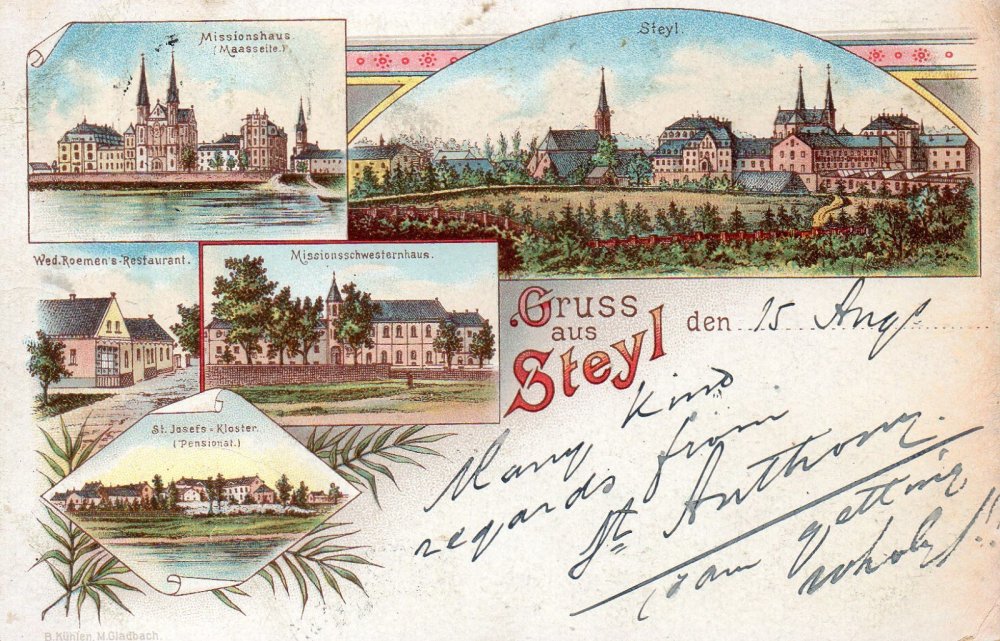 Missionshaus
(Maasseite.)
Steyl.
Wed. Roemen's-Restaurant.
Missionsschwesternhaus.
Gruss
aus
Steyl
den 15 Aug
St. Josefs-Kloster.
(Pensionat.)
Many kind
regards from
St Anthony.
I am getting
wholy!!
B. Kühlen, M. Gladbach.